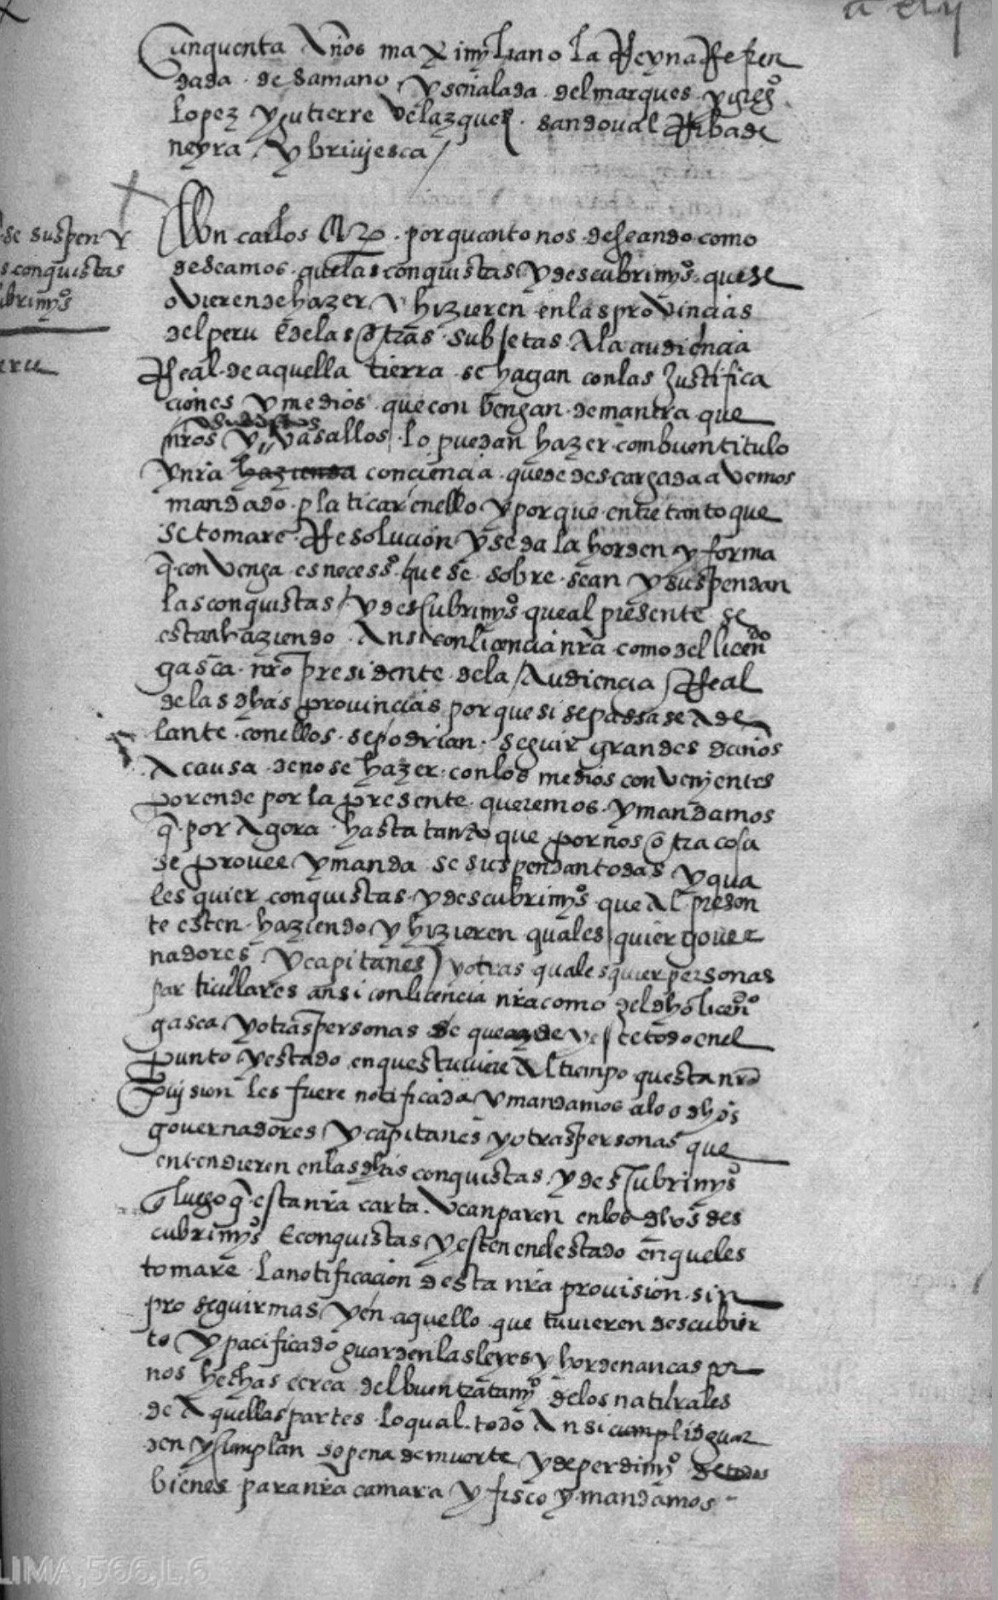 Cinquenta Años maximyliano la Reyna Refren
dada de samano y señalada del marques y gregº
lopez y gutierre Velazquez sandoval Ribade
neyra y briviesca /
se suspen
s conquistas
ubrimyºs
eru
Don carlos &c. por quanto nos deseando como
deseamos que las conquistas y descubrimyºs que se
ovieren de hazer y hizieren en las provincias
del peru e de las otras subjetas A la audiencia
Real de aquella tierra se hagan con las Justifica
ciones y medios que convengan de manera que
nros subditos y vasallos lo puedan hazer con buen titulo
y nra hazienda conciencia quede descargada avemos
mandado platicar en ello y porque entretanto que
se tomare Resolucion y se da la horden y forma
q convenga es necessº que se sobresean y suspendan
las conquistas y descubrimyºs que al presente se
estan haziendo Ansi con licencia nra como del licendº
gasca nro presidente de la Audiencia Real
de las dhas provincias porque si se passase Ade
lante con ellos se podrian seguir grandes daños
A causa de no se hazer con los medios convenyentes
por ende por la presente queremos y mandamos
q por Agora hasta tanto que por nos otra cosa
se provee y manda se suspendan todas y qua
lesquier conquistas y descubrimyºs que Al presen
te esten haziendo y hizieren qualesquier gover
nadores y capitanes y otras qualesquier personas
particullares ansi con licencia nra como del dho licendº
gasca y otras personas de que y este todo en el
punto y estado en que estuviere Al tiempo questa nra
Provision les fuere notificada y mandamos a los dhos
governadores y capitanes y otras personas que
entendieren en las dhas conquistas y descubrimyºs
q luego q esta nra carta Vean paren en los dhos des
cubrimyºs E conquistas y esten en el estado en que les
tomare la notificacion desta nra provision sin
proseguir mas y en aquello que tuvieren descubier
to y pacificado guarden las leyes y hordenancas por
nos hechas cerca del buen tratamyº de los naturales
de Aquellas partes lo qual todo Ansi cumplid guar
den y cumplan so pena de muerte y de perdimyº de todos
bienes para nra camara y fisco y mandamos
LIMA,566,L.6